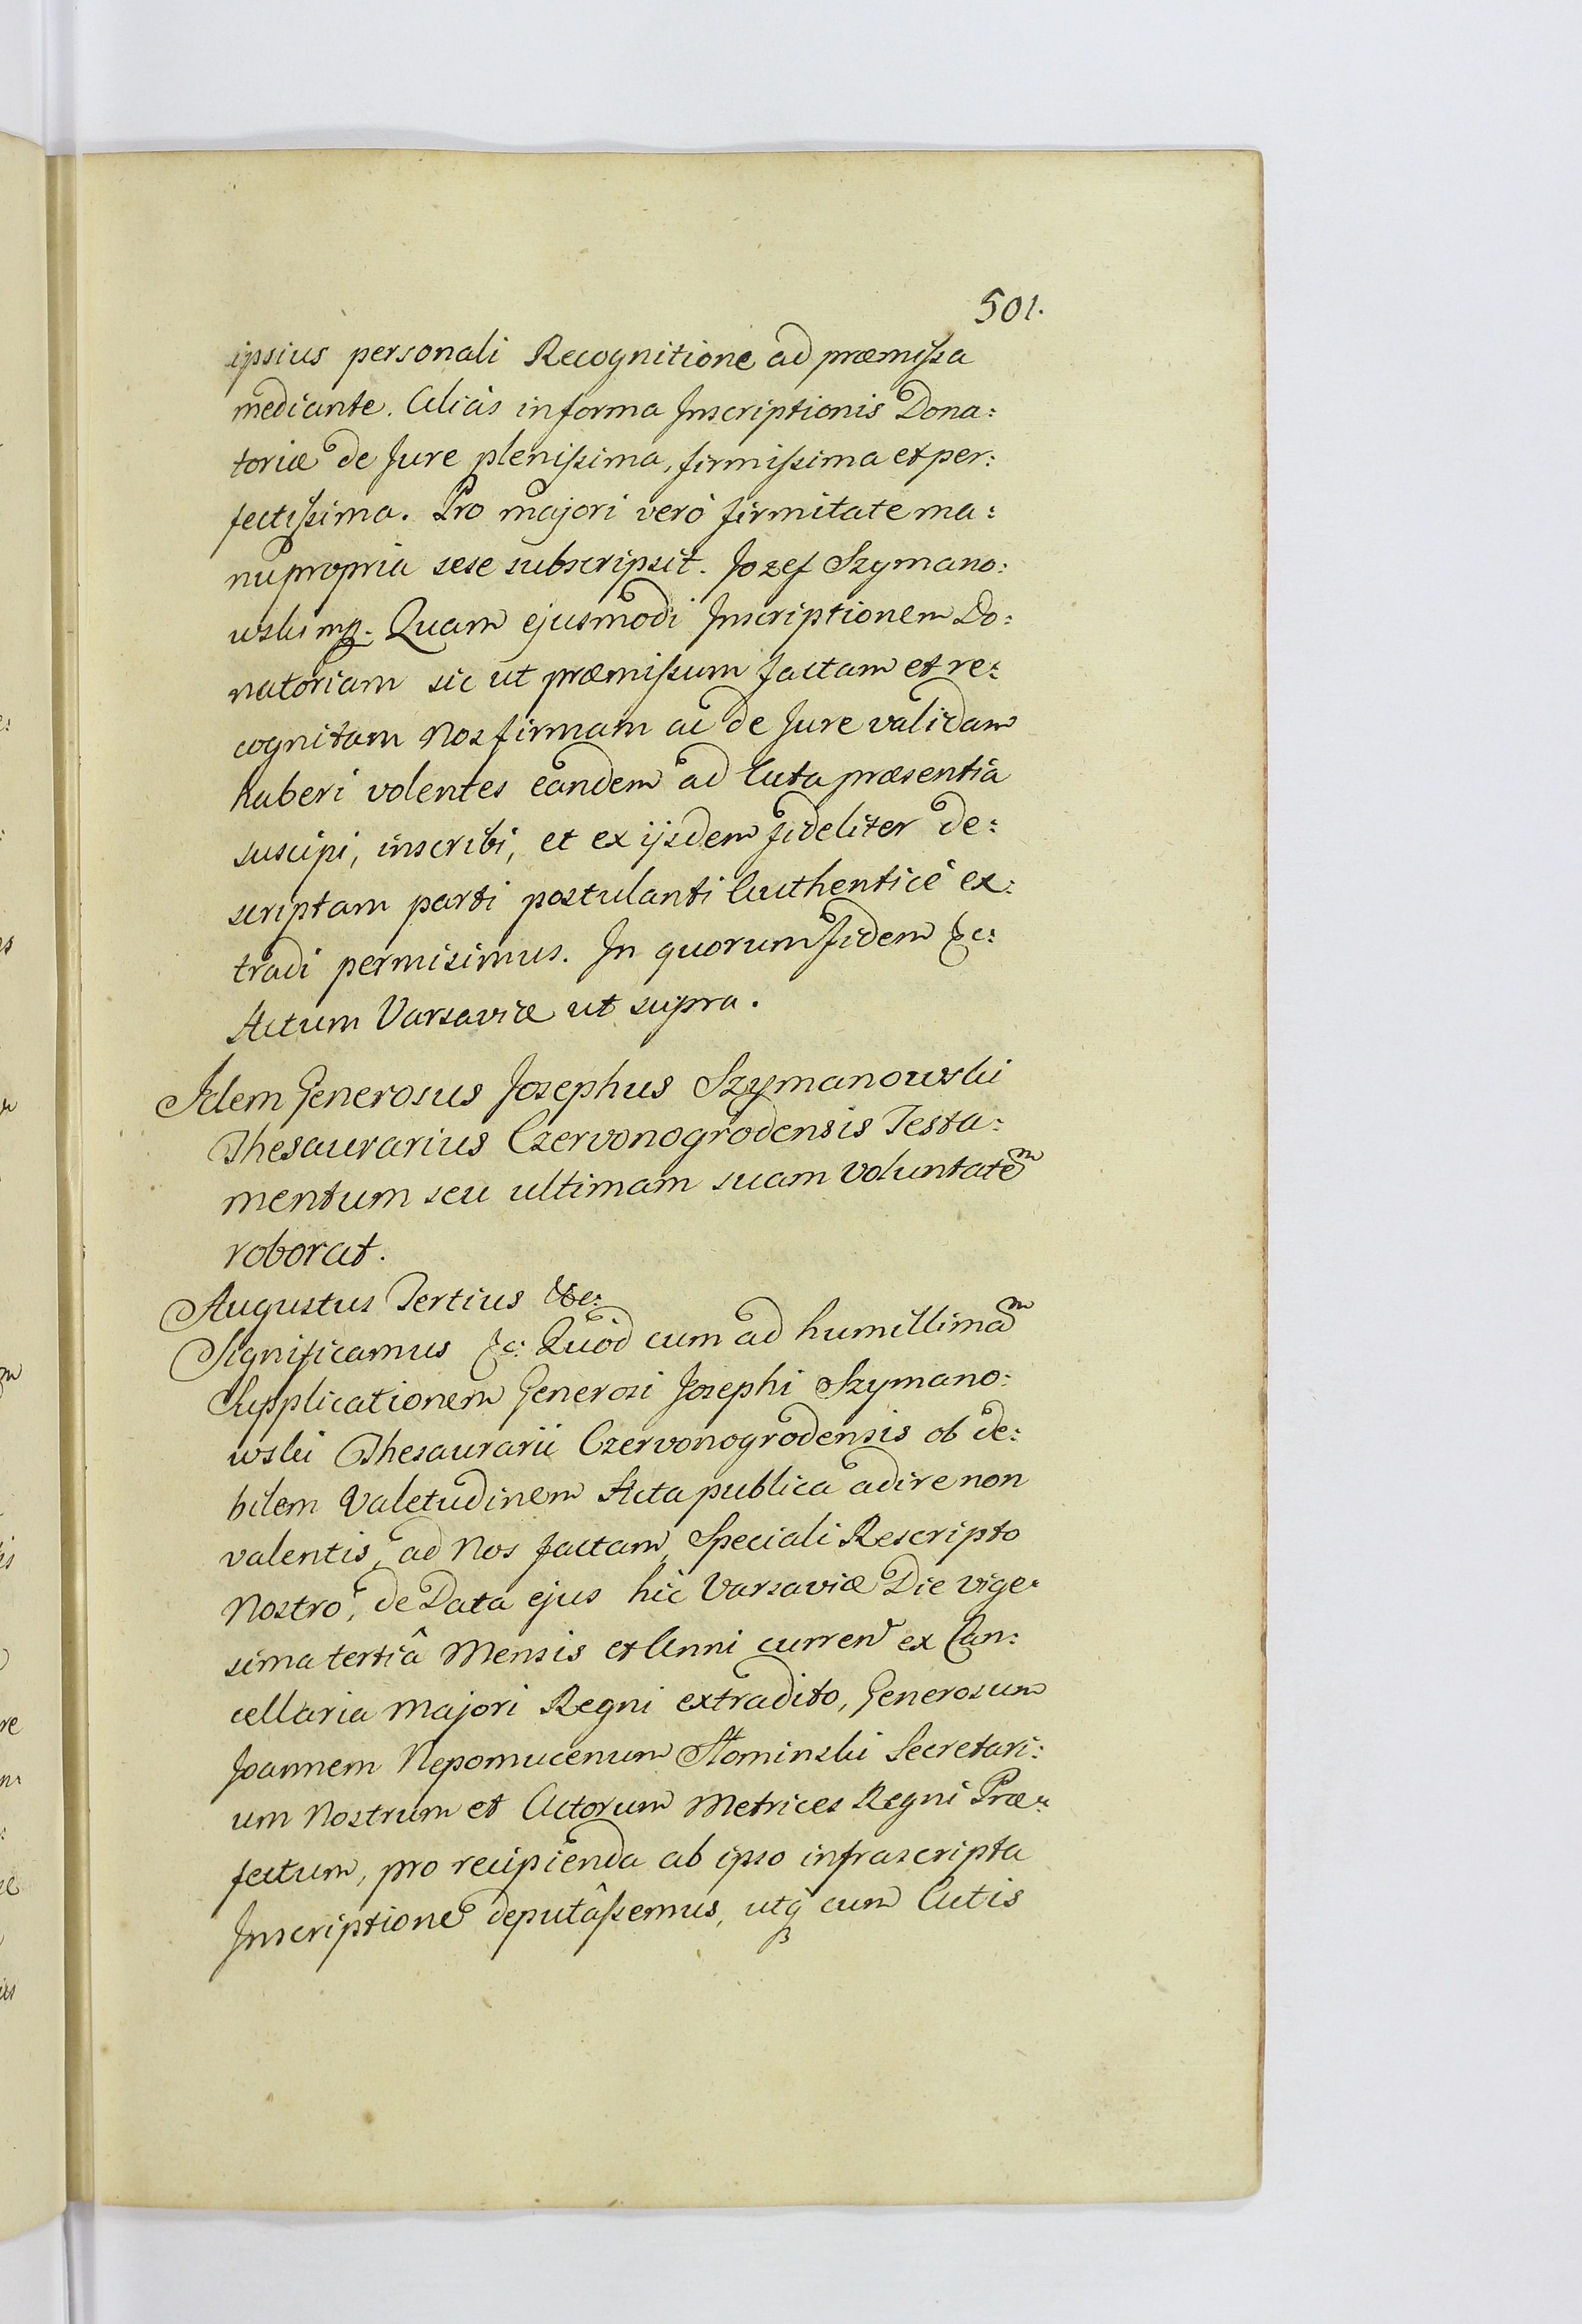 501.
ipsius personali Recognitione ad præmissa
mediante. Aliàs in forma Inscriptionis Dona:
toriæ de Jure plenissima, firmissima et per:
fectissima. Pro majori verò firmitate ma:
nu propria sese subscripsit. Jozef Szymano:
wski mp. Quam ejusmodi Inscriptionem Do:
natoriam sic ut præmissum factam et re:
cognitam Nos firmam ac de Jure validam
haberi volentes eandem ad Acta præsentia
suscipi, inscribi, et ex ijsdem fideliter de:
scriptam parti postulanti Authenticè ex:
tradi permisimus. In quorum fidem &c:
Actum Varsaviæ ut supra.
Idem Generosus Josephus Szymanowski
Thesaurarius Czervonogrodensis Testa:
mentum seu ultimam suam voluntatem
roborat.
Augustus Tertius &c:
Significamus &c: Quòd cum ad humillimam
Supplicationem Generosi Josephi Szymano:
wski Thesaurarii Czervonogrodensis ob de:
bilem Valetudinem Acta publica adire non
valentis, ad Nos factam, Speciali Rescripto
Nostro, de Data ejus hic Varsaviæ Die vige:
sima tertiâ Mensis et Anni curren ex Can:
cellaria Majori Regni extradito, Generosum
Joannem Nepomucenum Słominski Secretari:
um Nostrum et Actorum Metrices Regni Præ:
fectum, pro recipienda ab ipso infrascripta
Inscriptione deputâssemus, utq cum Actis